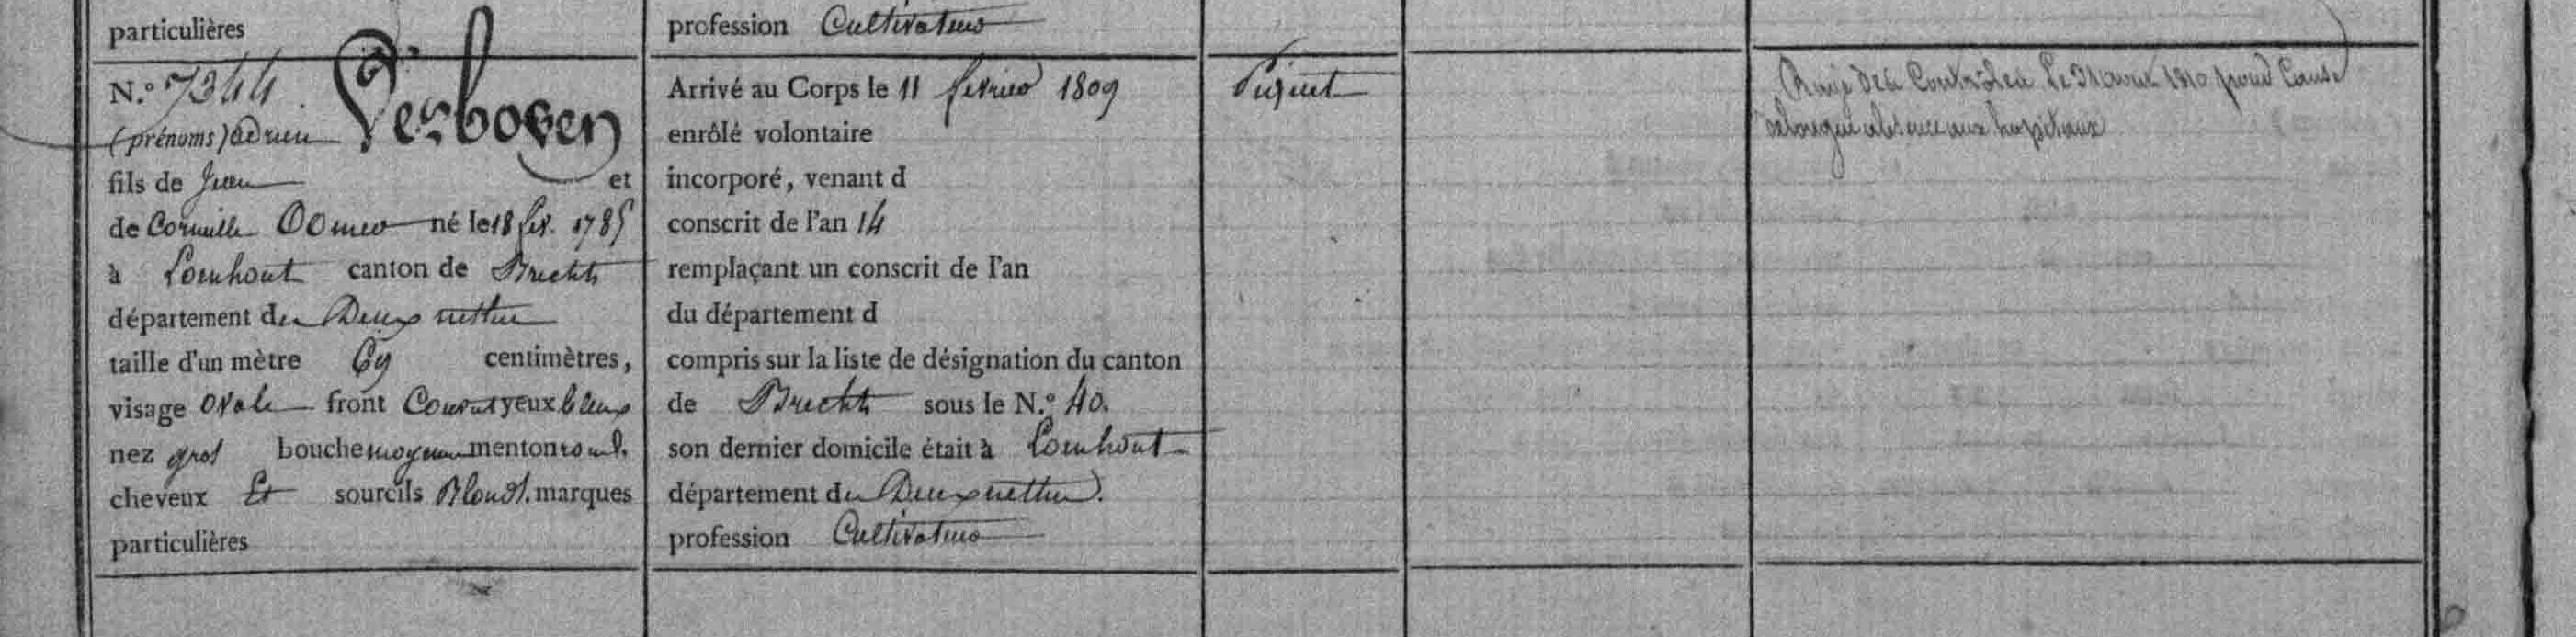 particulières
profession Cultivateur
N.° 7344 Verboven
(prénoms) adrien
fils de Jean et
de Corneille Oomen né le 18 fév. 1785
à Loenhout canton de Brecht
département des Deux nethes
taille d'un mètre 69 centimètres,
visage Ovale front Couvert yeux bleus
nez gros bouche moyenne menton rond.
cheveux Et sourcils Blonds. marques
particulières
Arrivé au Corps le 11 fevrier 1809
enrôlé volontaire
incorporé, venant d
conscrit de l'an 14
remplaçant un conscrit de l'an
du département d
compris sur la liste de désignation du canton
de Brecht sous le N.° 40.
son dernier domicile était à Loenhout
département des Deux nethes.
profession Cultivateur
Piquet
Rayé des Contrôles Le 31 1810 pour Cause
de longue absence aux hopitaux